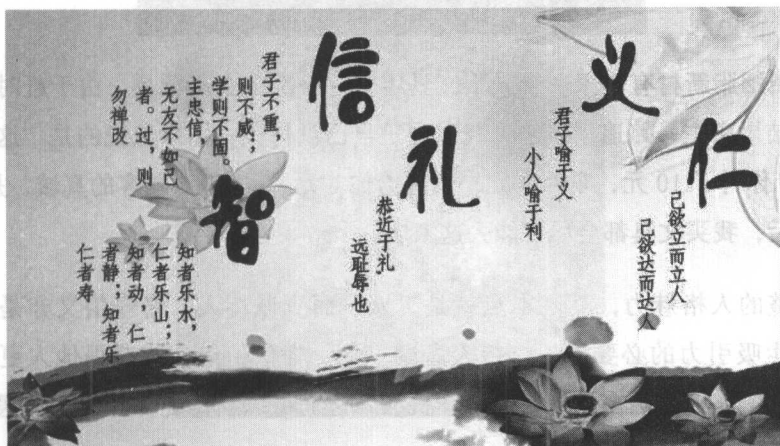 仁
己欲立而立人
己欲达而达人
义
君子喻于义
小人喻于利
礼
恭近于礼，
远耻辱也
信
君子不重，
则不威；
学则不固。
主忠信，
无友不如己
者。过，则
勿禅改
智
知者乐水，
仁者乐山；
知者动，仁
者静；知者乐
仁者寿